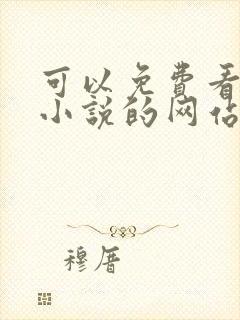 可以免费看
小说的网站
穆厝